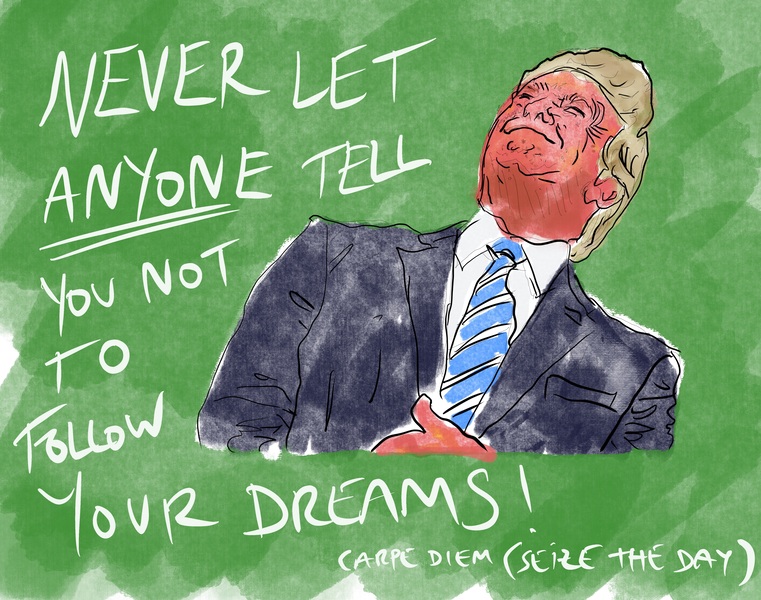 NEVER LET
ANYONE TELL
YOU NOT
TO
FOLLOW
YOUR DREAMS!
CARPE DIEM (SEIZE THE DAY)